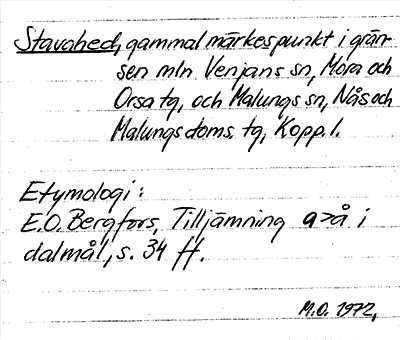 Stavahed, gammal märkespunkt i grän-
sen mln Venjans sn, Mora och
Orsa tg, och Malungs sn, Nås och
Malungs doms. tg, Kopp. l.
Etymologi:
E.O. Bergfors, Tilljämning a>å i
dalmål, s. 34 ff.
M.O. 1972,